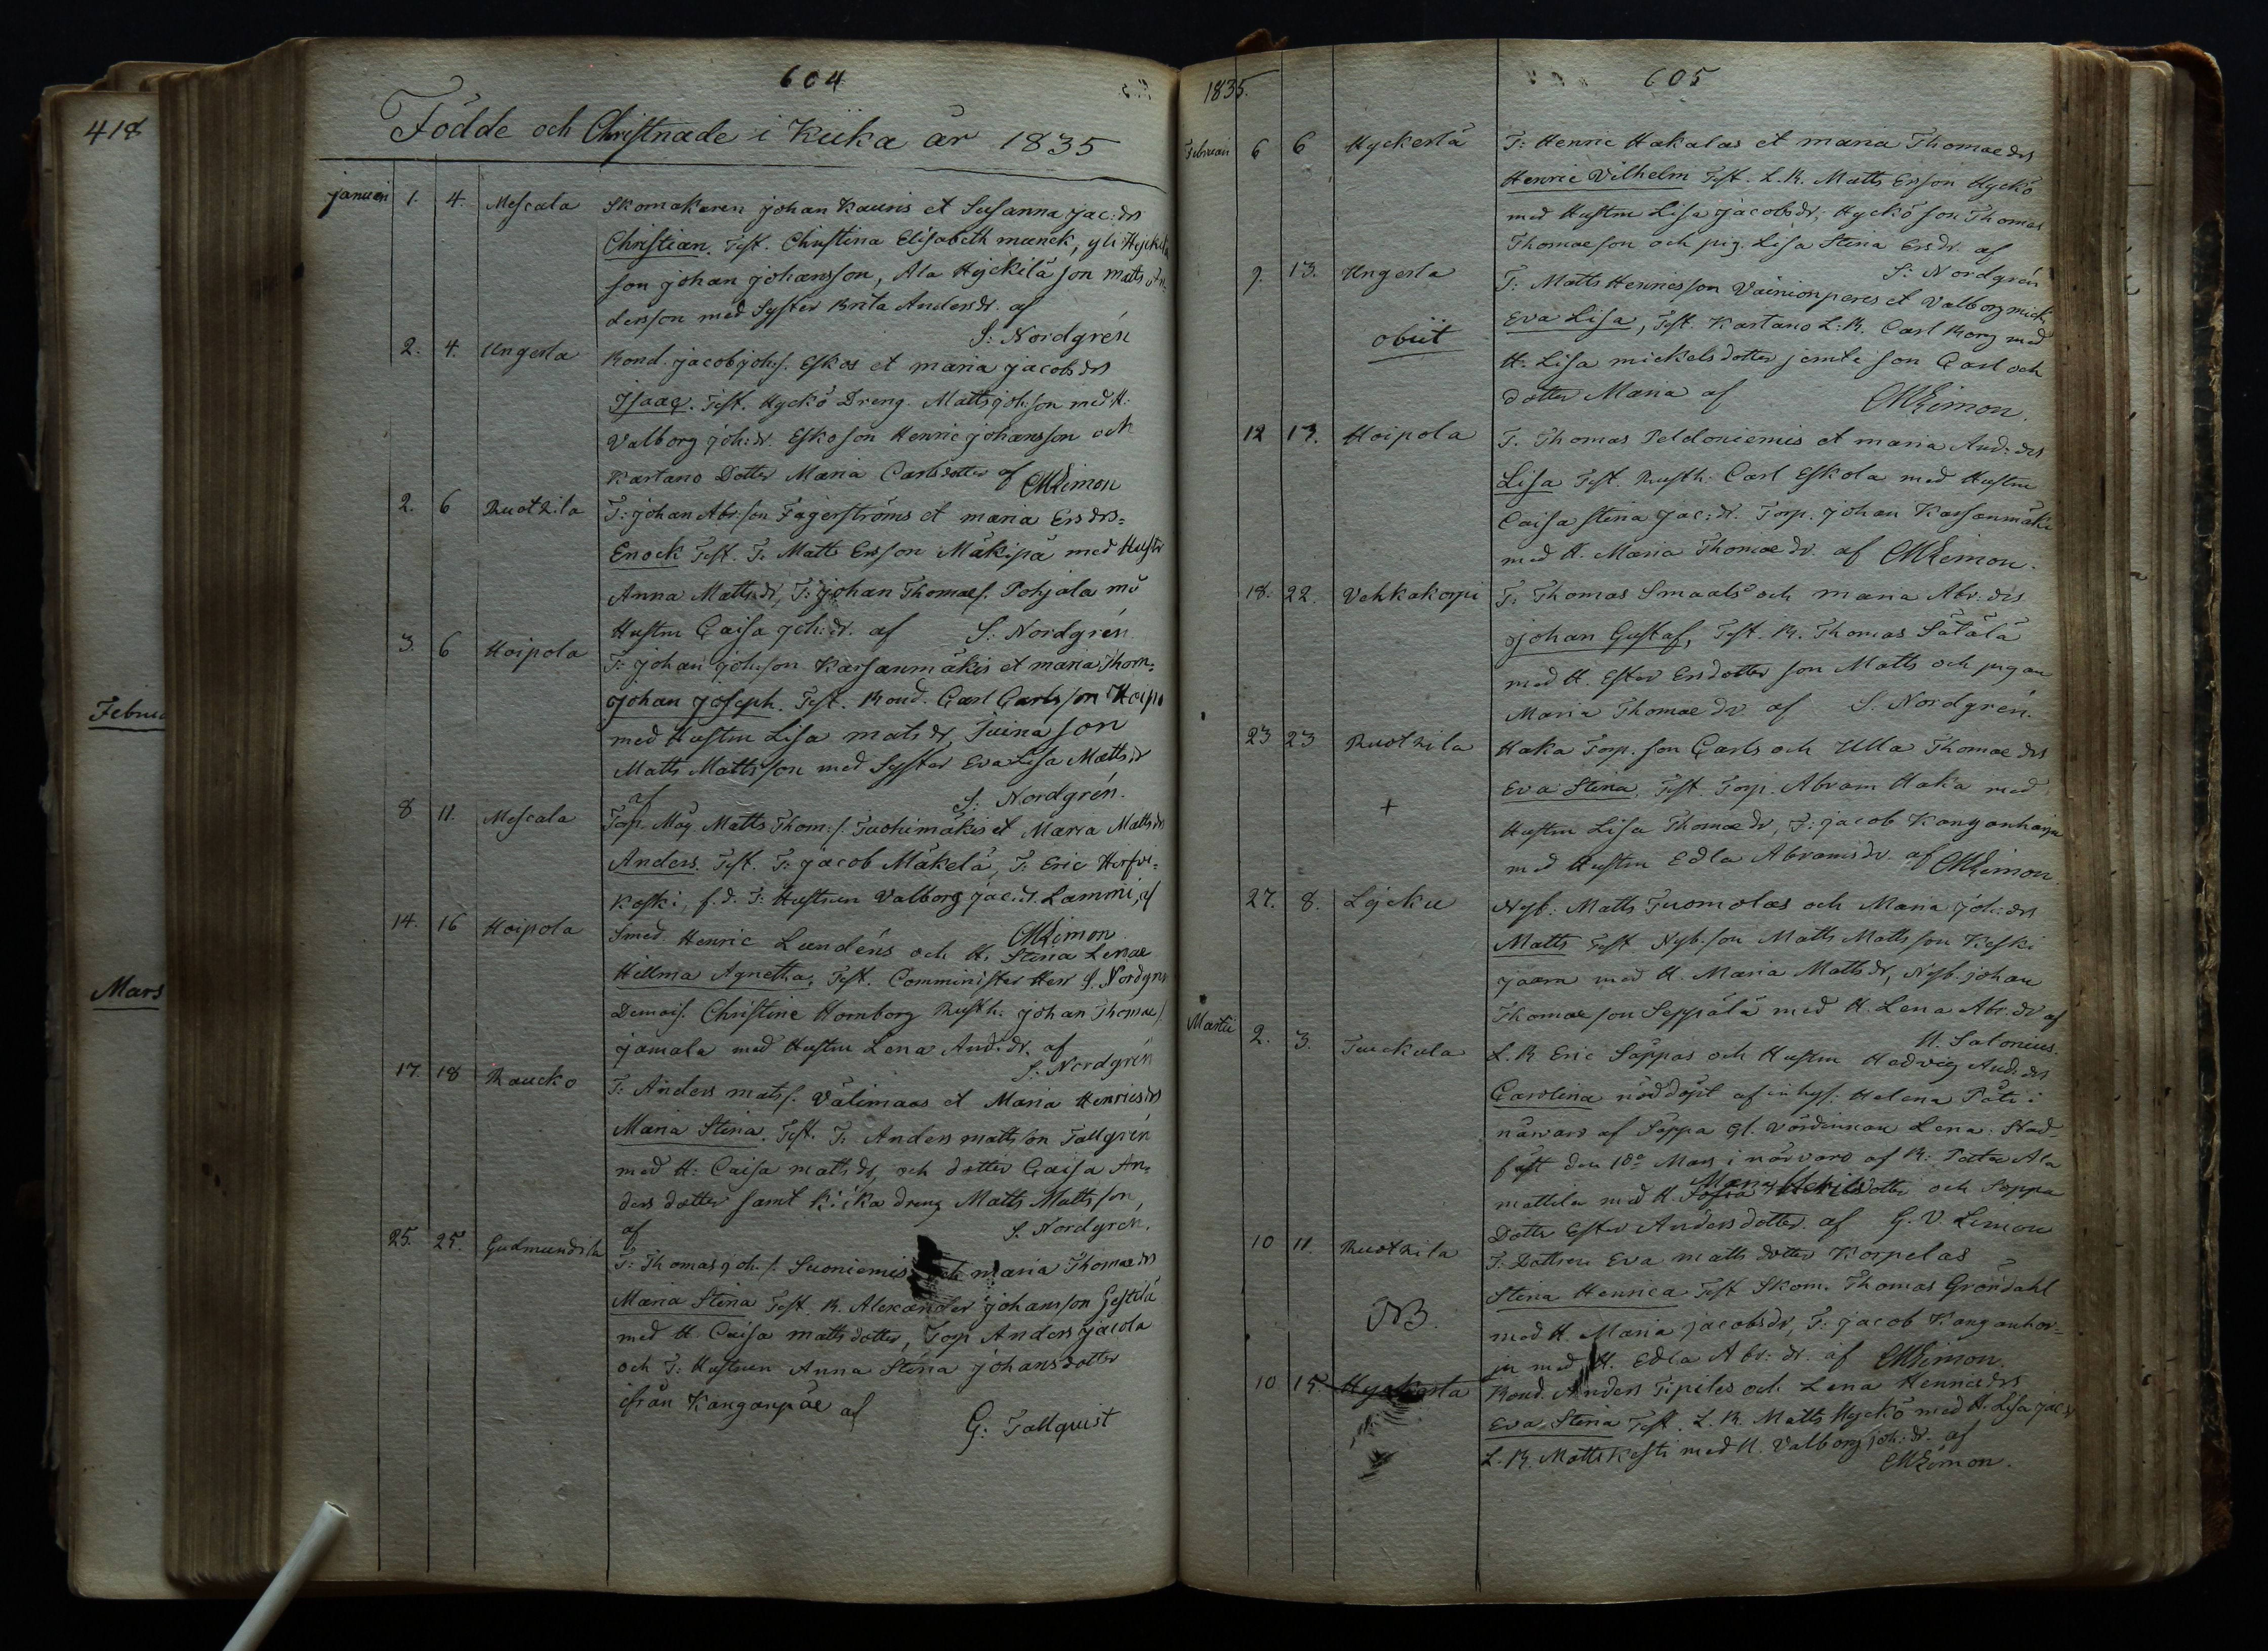 418
Februa
Mars
604
Födde och Christnade i Kiika år 1835
januari 1. 4. Mescala Skomakaren johan Kauris et Susanna jac:drs
Christian. Test. Christina Elisabeth munck, yli Hyckilä
son johan johansson, Ala Hyckilä son matts An-
dersson med Syster Brita Andersdr. af
S: Nordgrén
2. 4. Ungerla Bond. jacob joh:s. Eskos et maria jacobsdrs
Isaac. Test. Hyckö Dreng. Matts joh:son med H.
Valborg joh:dr. Esko son Henric johansson och
Kartano Dotter Maria Carlsdotter af Limon
2. 6 Ruotzila T: johan Abr:son Fagerströms et maria Ersdrs=
Enock Test. T. Matts Ersson Mäkipä med Hustr
Anna Matts:dr, T: johan Thomaes. Pohjala md
Hustru Caisa joh:dr. af S: Nordgrén.
3. 6 Hoipola T: johan joh:son Karsanmäkis et maria Thom-
johan joseph. Test. Bond. Carl Carlsson Hoipo
med Hustru Lisa matsdr, Tuina son
Matts Mattsson med Syster Eva Lisa Mattsdr
af S: Nordgrén.
8 11. Mescala Torp. Måg Matts Thom:s. Tuohimäkis et Maria Mattsdrs
Anders. Test. T: jacob Mäkelä, T: Eric Hirsi-
koski, f.d. T: Hustrun Valborg jac:dr. Lammi, af
Limon
14. 16 Hoipola Smed. Henric Lundéns och H. Stina Lenae
Hillma Agnetha, Test. Comminister Herr S. Nordgrn
Demois. Christine Homborg Rusth. johan Thomaes.
jamala med Hustru Lena And:dr. af
S: Nordgrén
17. 18 Raucko T: Anders mats. Välimaas et Maria Henricsdrs
Maria Stina. Test. T. Anders mattsson Tallgrén
med H: Caisa mattsdr, och dotter Caisa An-
ders dotter samt kiika dreng Matts Mattsson,
af S. Nordgrén.
25. 25. Gudmundsla T: Thomas joh:s. Suoniemis och maria Thomaedrs
Maria Stina Test. B. Alexander johansson Gestilä
med H. Caisa matts dotter, Torp Anders jacola
och T: Hustrun Anna Stina johansdotter
ifrån Kanganpäe af G: Tallquist
1835.
605
Februari 6 6 Hyckerlä T: Henric Hakalas et maria Thomaedrs
Henric Vilhelm Test. L. B. Matts Ersson Hyckö
med Hustru Lisa jacobsdr, Hyckö son Thomas
Thomaeson och pig. Lisa Stina Ersdr. af
S: Nordgrén
9. 13. Ungerla T: Matts Henricsson Vainionperes et Valborg mick
obiit Eva Lisa, Test. Kartano L: B. Carl Borg med
H. Lisa mickelsdotter jemte son Carl och
dotter Maria af Limon.
12 13. Hoipola T. Thomas Peldoniemis et maria And:drs
Lisa Test. Rusth. Carl Eskola med Hustru
Caisa stina jac:dr. Torp. johan Karsanmäki
med H. Maria Thomae dr. af Limon.
18. 22. Vehkakorpi T: Thomas Smaals och maria Abr:drs
johan Gustaf, Test. B. Thomas Sätälä
med H. Ester Ersdotter son Matts och pigan
Maria Thomae dr af S. Nordgrén.
23 23 Ruotzila Haka Torp. son Carls och Ulla Thomae drs
Eva Stina, Test. Torp. Abram Haka med
+ Hustru Lisa Thomaedr, T: jacob Kanganharju
med Hustru Edla Abramsdr. af Limon.
27. 8. Lycku Nyb: Matts Tuomolas och Maria joh:drs
Matts Test Nyb.son Matts Mattsson Keski
jaara med H. Maria Mattsdr, Nyb. johan
Thomaeson Seppälä med H. Lena Abr.dr af
H. Salonius.
Martii 2. 3. Tuckula L. B Eric Sappas och Hustru Hedvig And:drs
Carolina nöddöpt af inhys: Helena Päti i
närvaro af Sappa gl. Värdinnan Lena. Stad-
fäst den 18de Mars i närvaro af B: Petter Ala
mattila med H. Maria dotter och Sappa
Dotter Ester Andersdotter. af G. V. Limon
10 11. Ruotzila T. Dottren Eva matts dotter Korpelas
Stina Henrica Test Skom. Thomas Gröndahl
NB. med H. Maria jacobsdr, T: jacob Kanganhar-
ju med H. Edla Abr:dr. af Limon.
10 15. Hyckerla Bond. Anders Pipilis och Lena Henricsdrs
Eva Stina Test. L. B. Matts Hyckö med H. Lisa jac:dr
L. B. Matts Kesti med H. Valborg joh:dr. af
Limon.